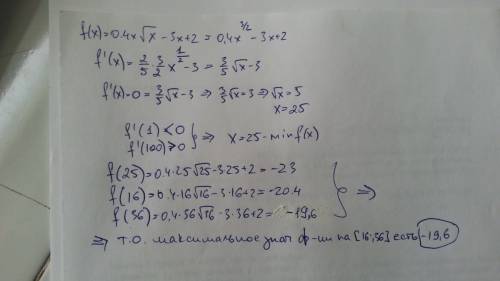 f(x)=0.4x√x - 3x+2 = 0,4x^{3/2} - 3x+2
f'(x)= 2/5 · 3/2 x^{1/2} - 3 = 3/5 √x - 3
f'(x)=0 = 3/5 √x - 3 ⇒ 3/5 √x = 3 ⇒ √x = 5
x=25
f'(1) < 0
f'(100) > 0 } ⇒ x=25 - min f(x)
f(25)=0.4·25√25 - 3·25+2 = -23
f(16)=0.4·16√16 - 3·16+2 = -20.4
f(36)=0,4·36√16 - 3·36+2 = -19,6 } ⇒
⇒ т.о. максимальное знач ф-ии на [16;36] есть -19,6